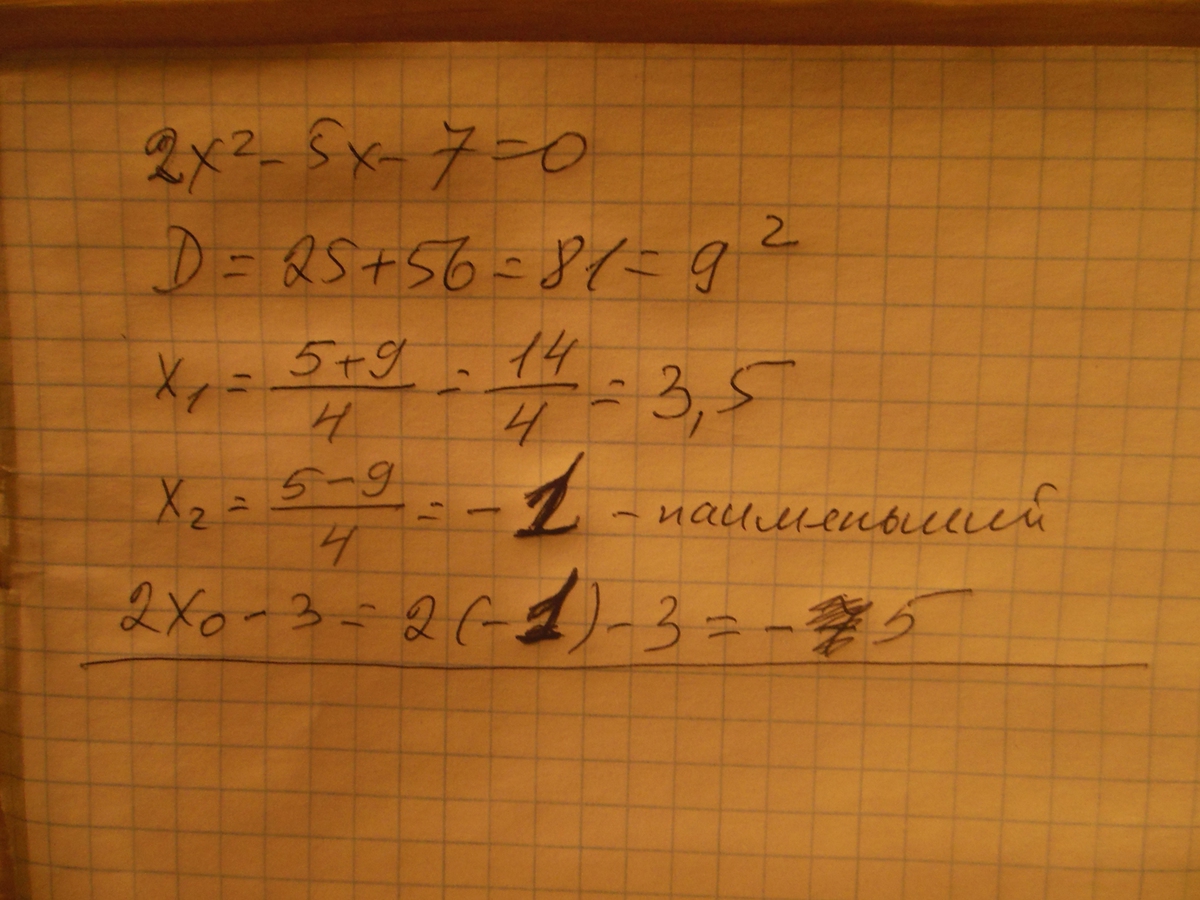 2x² - 5x - 7 = 0
D = 25 + 56 = 81 = 9²
x₁ = (5+9)/4 = 14/4 = 3,5
x₂ = (5-9)/4 = -1 - наименьший
2x₀ - 3 = 2(-1) - 3 = -5